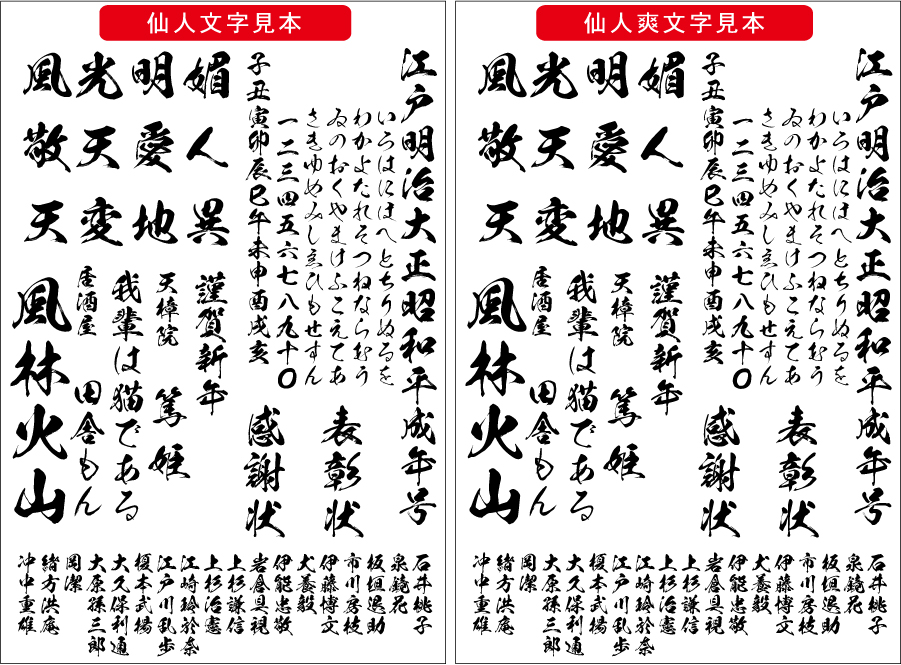 仙人文字見本
江戸明治大正昭和平成年号
いろはにほへとちりぬるを
わかよたれそつねならむう
ゐのおくやまけふこえてあ
さきゆめみしゑひもせすん
一二三四五六七八九十〇
子丑寅卯辰巳午未申酉戌亥
媚人異
明愛地
光天変
風敬天
表彰状
感謝状
謹賀新年
天樟院 篤姫
我輩は猫である
居酒屋 田舎もん
風林火山
石井桃子
泉鏡花
板垣退助
市川房枝
伊藤博文
犬養毅
伊能忠敬
岩倉具視
上杉謙信
上杉治憲
江崎玲於奈
江戸川乱歩
榎本武揚
大久保利通
大原孫三郎
岡潔
緒方洪庵
冲中重雄
仙人爽文字見本
江戸明治大正昭和平成年号
いろはにほへとちりぬるを
わかよたれそつねならむう
ゐのおくやまけふこえてあ
さきゆめみしゑひもせすん
一二三四五六七八九十〇
子丑寅卯辰巳午未申酉戌亥
媚人異
明愛地
光天変
風敬天
表彰状
感謝状
謹賀新年
天樟院 篤姫
我輩は猫である
居酒屋 田舎もん
風林火山
石井桃子
泉鏡花
板垣退助
市川房枝
伊藤博文
犬養毅
伊能忠敬
岩倉具視
上杉謙信
上杉治憲
江崎玲於奈
江戸川乱歩
榎本武揚
大久保利通
大原孫三郎
岡潔
緒方洪庵
冲中重雄